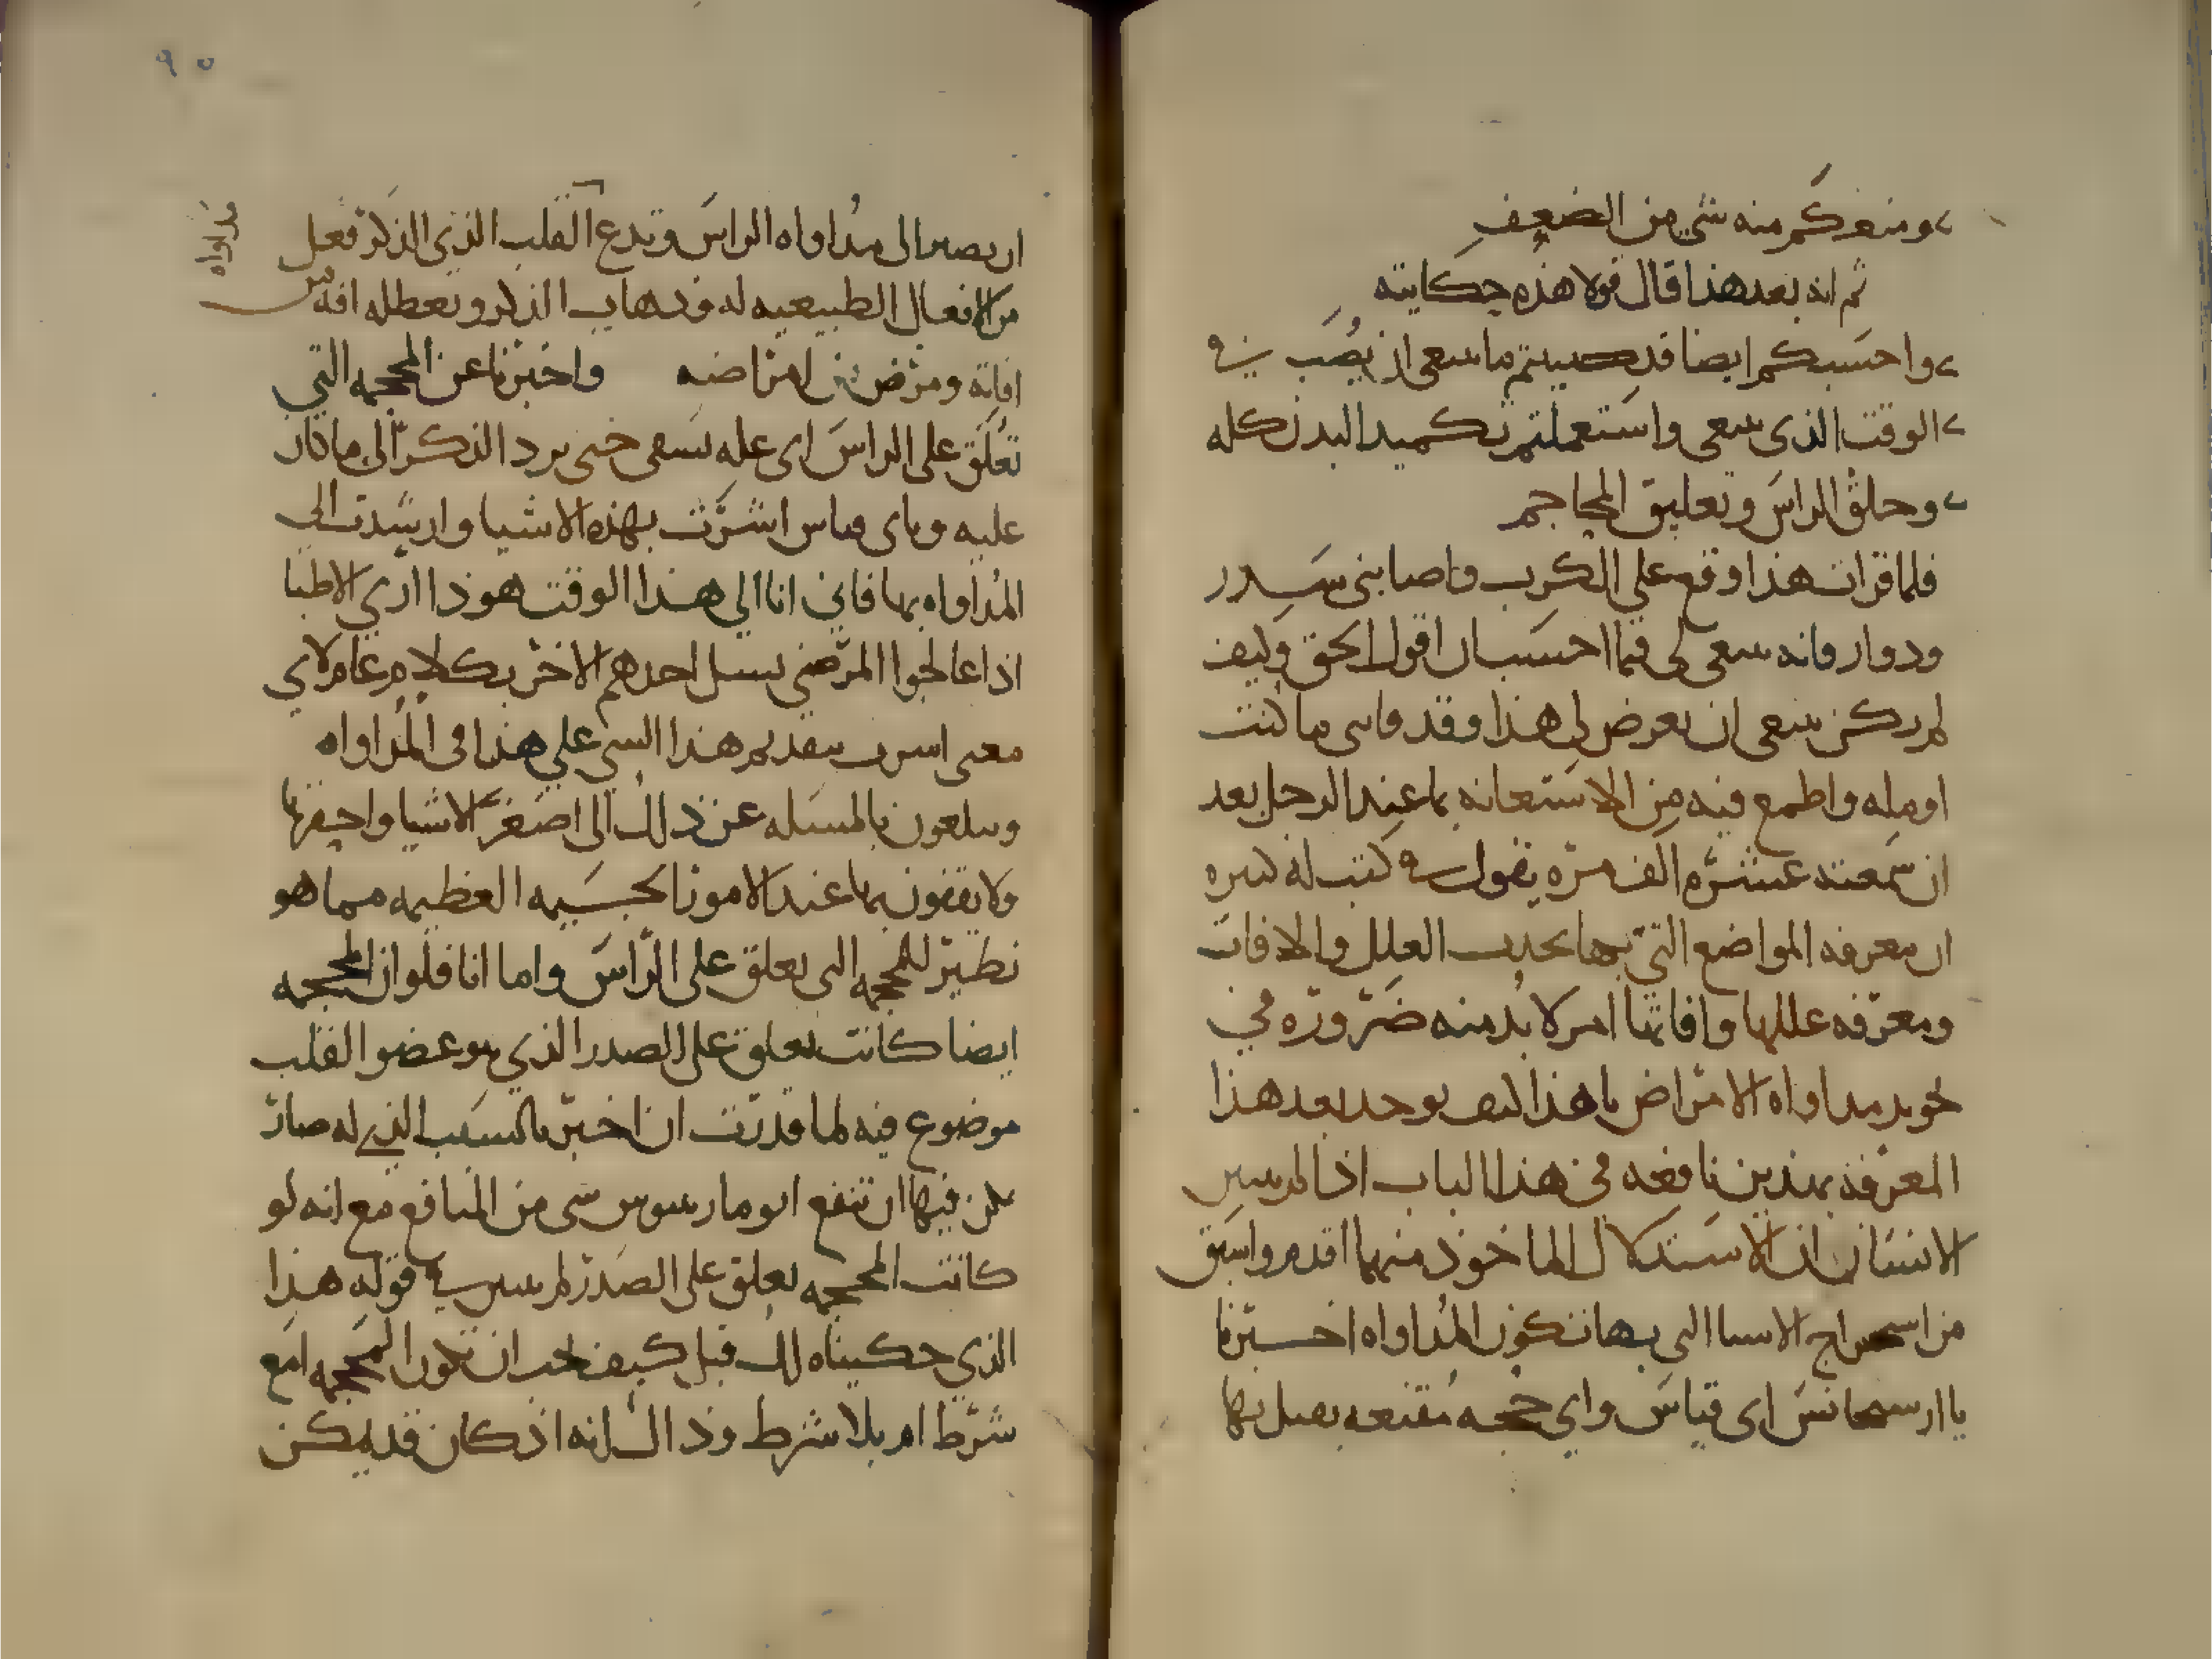 ومنعكم منه شي من الضعف
ثم انه بعد هذا قال قولا هذه حكايته
واحسبكم ايضا قد صببتم ما ينبغي ان يصب في
الوقت الذي ينبغي واستعملتم تكميد البدن كله
وحلق الراس وتعليق المحاجم
فلما قرات هذا وقع علي الكرب واصابني سدر
ودوار وانه ينبغي لي فيما احسب ان اقول الحق وكيف
لم يكن ينبغي ان يعرض لي هذا وقد فاتني ما كنت
اومله واطمع فيه من الاستعانه بما عند الرجل بعد
ان سمعته عشره الف مره يقول في كتب له كثيره
ان معرفه المواضع التي بها تحدث العلل والافات
ومعرفه عللها وافاتها امر لا بد منه ضروره في
تجويد مداواه الامراض يا هذا كيف توجد بعد هذا
المعرفه بهذين نافعه في هذا الباب اذا لم يبين
الانسان ان الاستدلال الماخوذ منهما اقدم واسبق
من استخراج الاشيا التي بها تكون المداواه اخبرنا
يا ارسيجانس اي قياس واي حجه مقنعه يقبل بها
٩٥
ان يصير الى مداواه الراس وتدع القلب الذي الذكر فعل
مداواه
من الافعال الطبيعيه له وذهاب الذكر وتعطله افه من
افاته ومرض من امراضه واخبرنا عن المحجمه التي
تعلق على الراس اي عله تشفى حتى يرد الذكر الى ما كان
عليه وباي قياس اشرت بهذه الاشيا وارشدت الى
المداواه بها فاني انا الي هذا الوقت هوذا اري الاطبا
اذا عالجوا المرضى يسل احدهم الاخر بكلام عام لاي
معنى اشرت بتقديم هذا الشي علي هذا في المداواه
ويبلغون بالمسله عن ذلك الى اصغر الاشيا واحقرها
ولا يقفون بها عند الامور الجسيمه العظيمه مما هو
نظير للمحجمه التي تعلق على الراس واما انا فلو ان المحجمه
ايضا كانت تعلق على الصدر الذي هو عضو القلب
موضوع فيه لما قدرت ان اخبر بالسبب الذي له صار
يمكن فيها ان تنفع ابوما رسوس شي من المنافع مع انه لو
كانت المحجمه تعلق على الصدر لم يبين في قوله هذا
الذي حكيناه لك قبل كيف يجب ان تكون المحجمه امع
شرط ام بلا شرط وذاك انه اذ كان قد يمكن